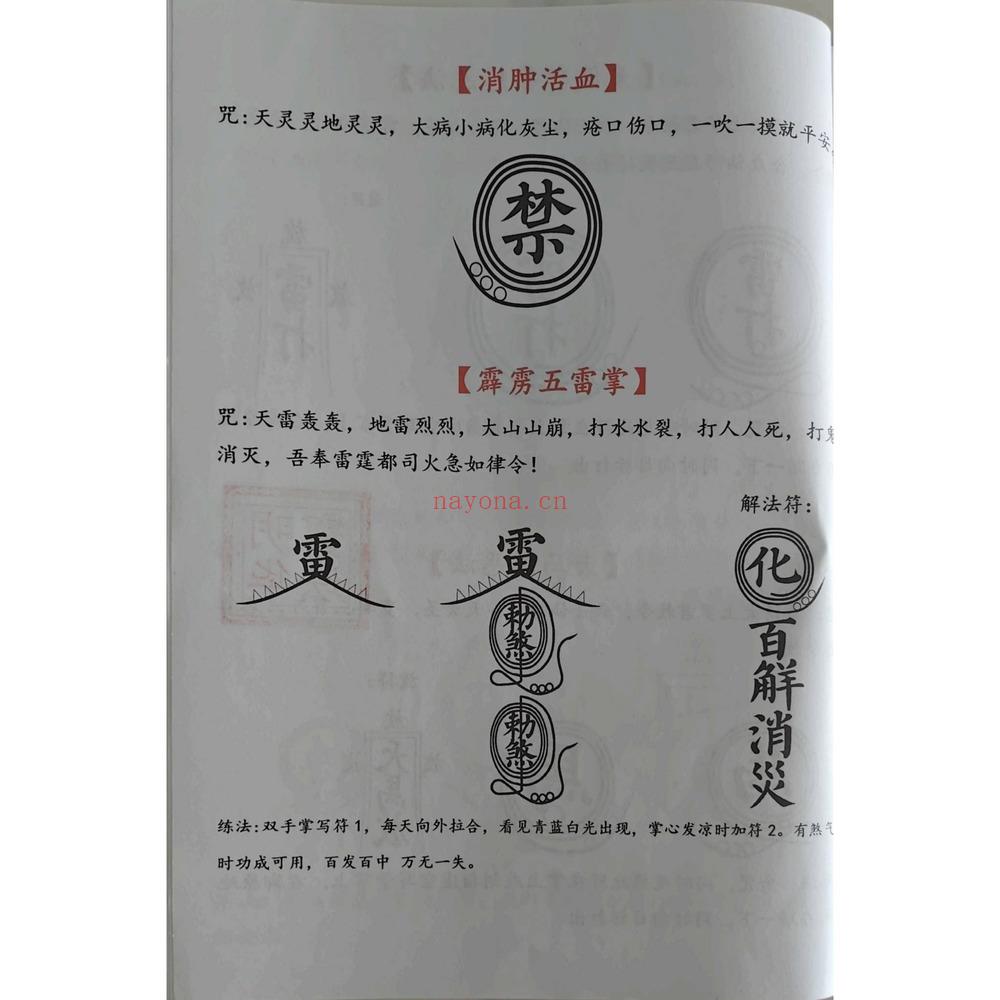 【消肿活血】
咒:天灵灵地灵灵，大病小病化灰尘，疮口伤口，一吹一摸就平安
禁
【霹雳五雷掌】
咒:天雷轰轰，地雷烈烈，大山山崩，打水水裂，打人人死，打鬼
消灭，吾奉雷霆都司火急如律令！
nayona.cn
解法符：
雷
雷
勅煞
勅煞
化
百解消災
练法:双手掌写符1，每天向外拉合，看见青蓝白光出现，掌心发凉时加符2。有煞气
时功成可用，百发百中 万无一失。